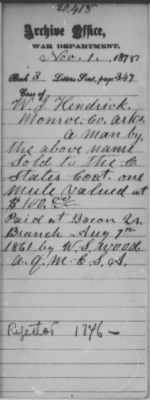 20,418
Archive Office,
WAR DEPARTMENT,
Nov. 1, 1878
Book 3 Letters Sent, page 347
Case of
W. J. Kendrick
Monroe Co. Arks.
a man by
the above name
sold to the C.
States Govt. one
mule valued at
$100.00
Paid at
Branch Aug 7th
1861 by W. S. Wood
A. Q. M. C. S. A.
Rejector 1846 —